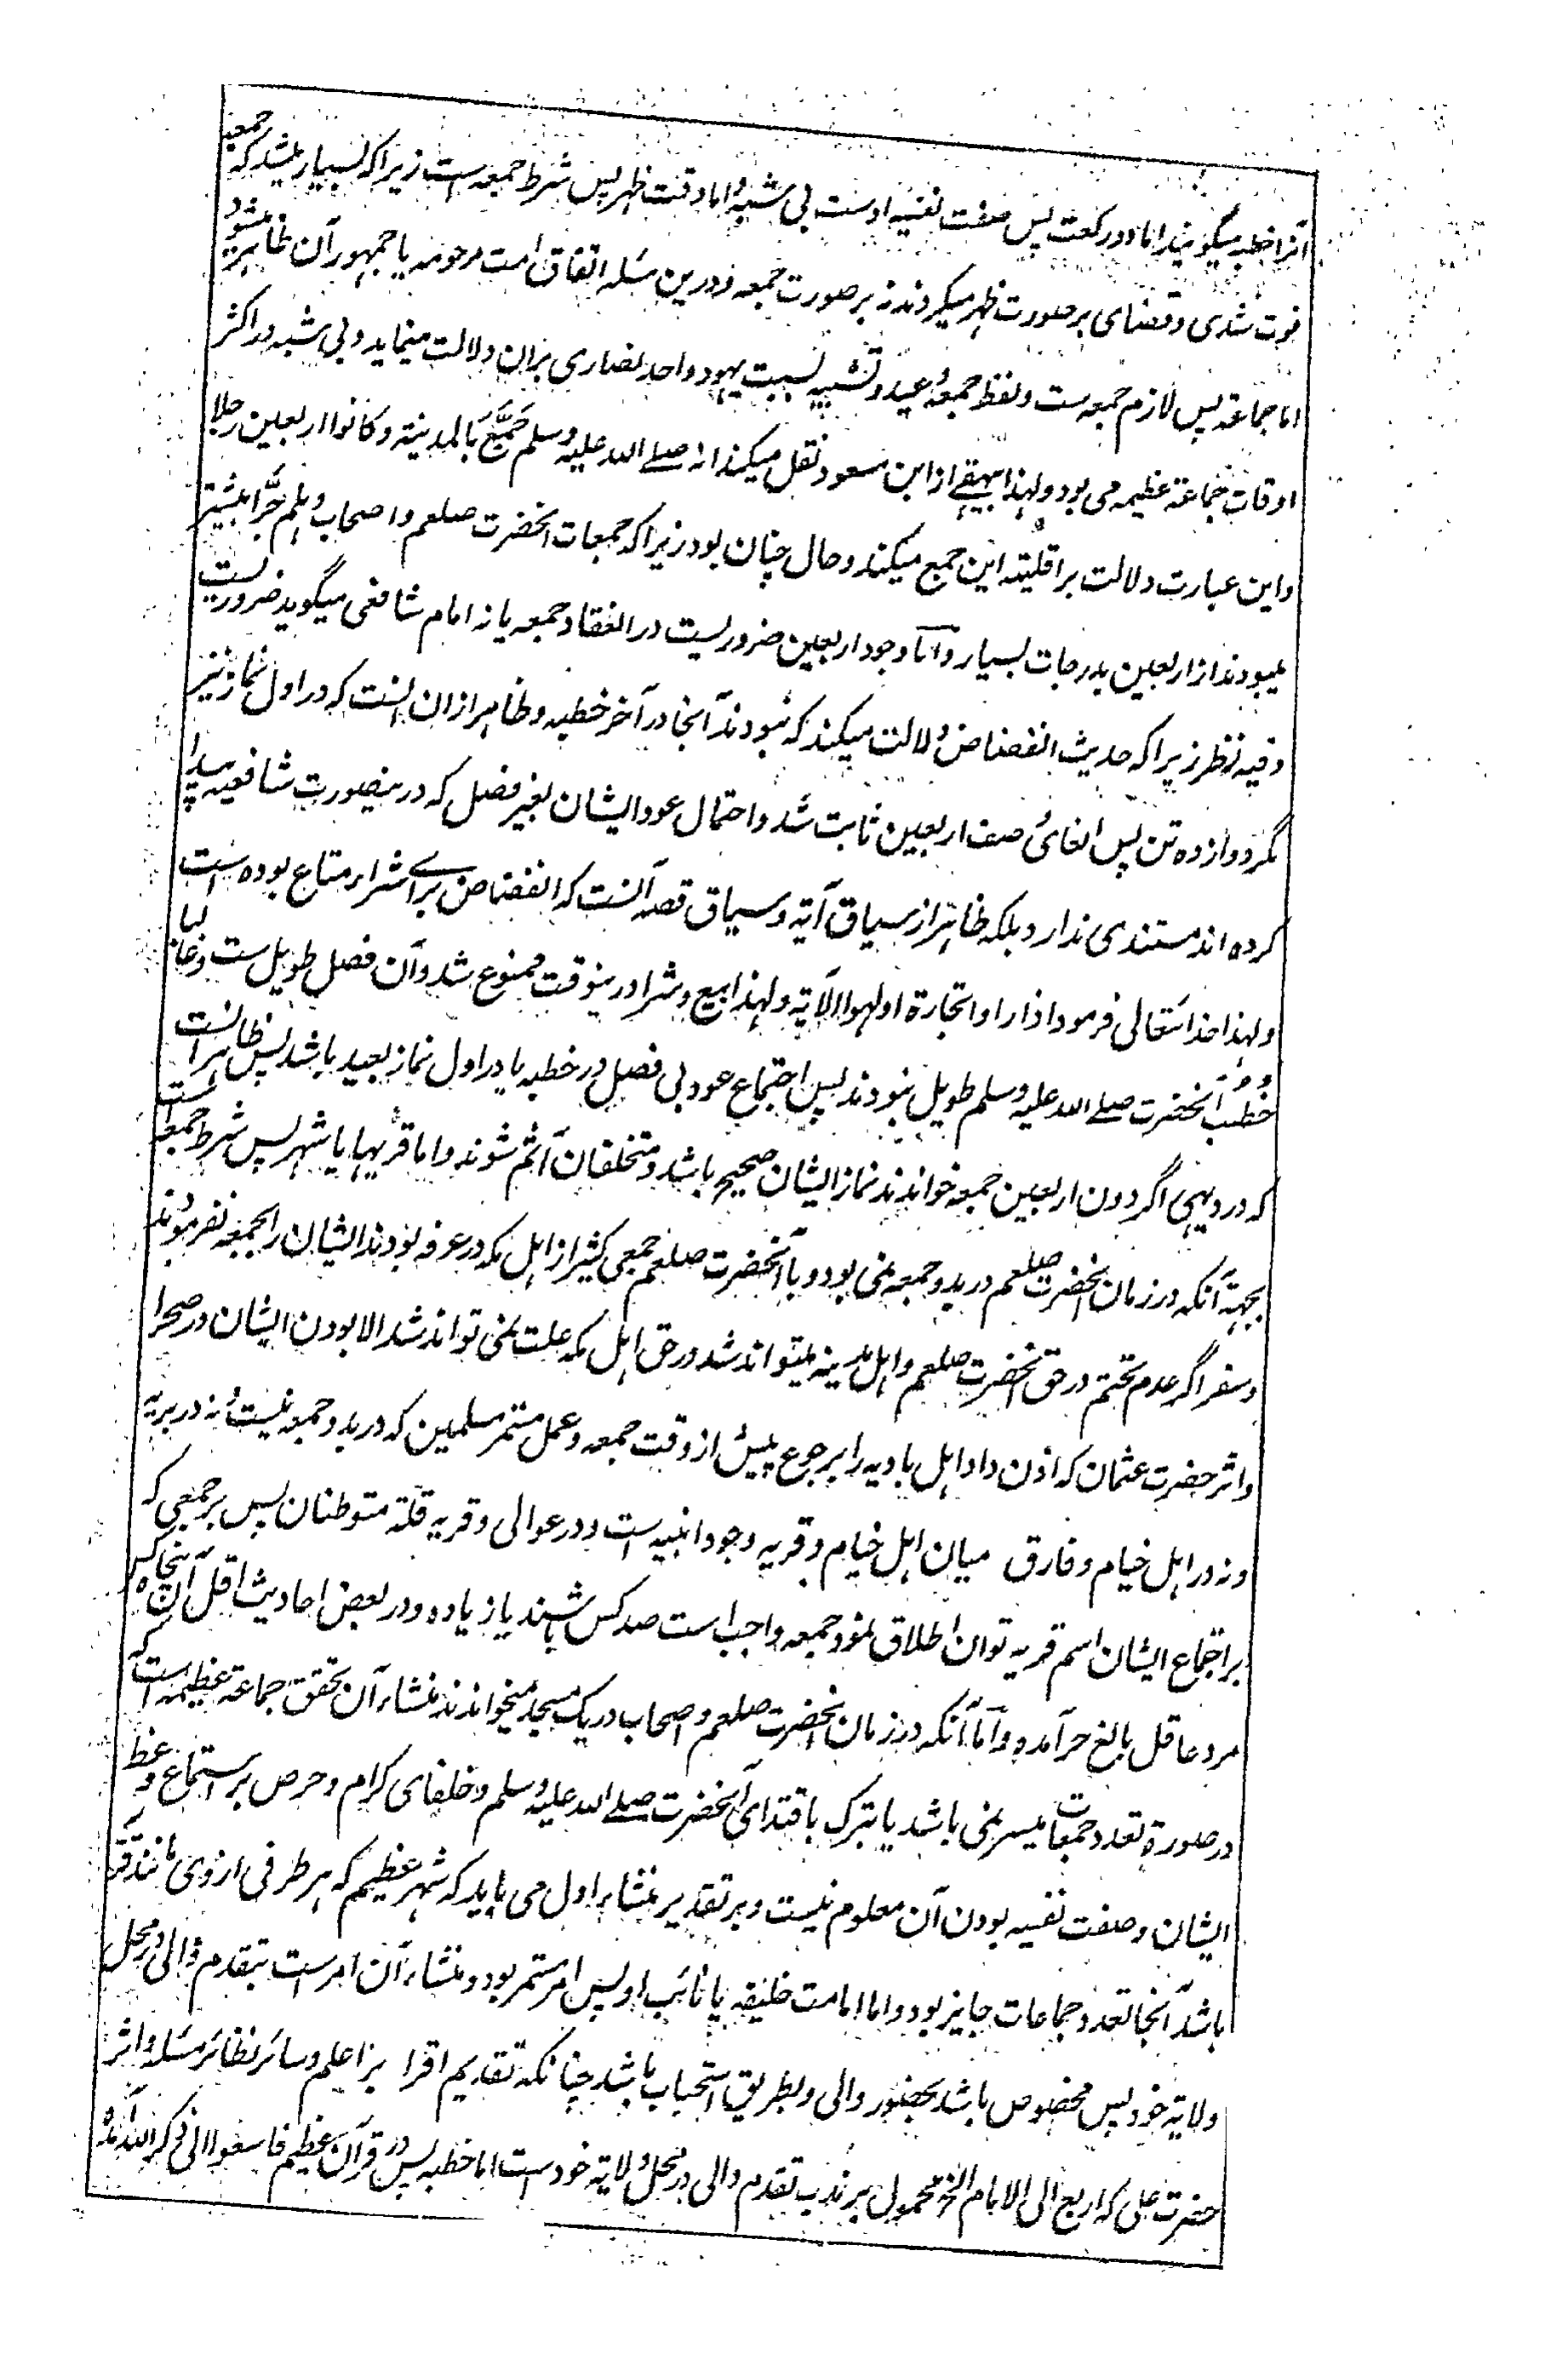 آنرا خطبه میگویند اما دو رکعت پس صفت نفسیه اوست بی شبهه و اما وقت ظهر پس شرط جمعه است زیرا که بسیار میشد که جمعه
فوت شدی و قضای بر صورت ظهر میکردند نه بر صورت جمعه و درین مسله اتفاق امت مرحومه یا جمهور آن ظاهر میشود
اما جماعة پس لازم جمعه ست و لفظ جمعه و عید و تشبیه بسبت یهود و احد نصاری بران دلالت مینماید و بی شبهه در اکثر
اوقات جماعة عظیمه می بود و لهذا بیهقے از ابن مسعود نقل میکند انه صلے الله علیه وسلم جَمَّعَ بالمدینة و کانوا اربعین رجلا
و این عبارت دلالت بر اقلیته این جمع میکند و حال چنان بود زیرا که جمعات آنحضرت صلعم و اصحاب و هلم جرّا بیشتر
میبودند از اربعین بدرجات بسیار و امّا وجود اربعین ضروریست در انعقاد جمعه یا نه امام شافعی میگوید ضروریست
و فیه نظر زیرا که حدیث انفضاض دلالت میکند که نبودند آنجا در آخر خطبه و ظاهر ازان انست که در اول نماز نیز
مگر دوازده تن پس الغائ صف اربعین ثابت شد و احتمال عود ایشان بغیر فصل که درینصورت شافعیه پیدا
کرده اند مستندی ندارد بلکه ظاهر از سیاق آیة و سیاق قصه آنست که انفضاض برائے اشراء متاع بوده است
و لهذا خدا تعالی فرمود اذا راوا تجارة او لهوا الآیة و لهذا بیع و شرا درینوقت ممنوع شد و آن فصل طویل ست و غالبا
خُطُبُ آنحضرت صلے الله علیه وسلم طویل نبودند پس اجتماع عود بی فصل در خطبه یا در اول نماز بعید باشد پس ظاهر انست
که در دیهی اگر دون اربعین جمعه خواندند نماز ایشان صحیح باشد و متخلفان آثم شوند و اما قریها یا شهر پس شرط جمعه است
بجهة آنکه در زمان آنحضرت صلعم در بدو جمعه نمی بود و با آنحضرت صلعم جمعی کثیر از اهل مکه در عرفه بودند ایشان را بجمعه نفرمودند
و سفر اگر عدم تحتم در حق آنحضرت صلعم و اهل مدینه میتواند شد در حق اهل مکه علت نمی تواند شد الا بودن ایشان در صحرا
و اثر حضرت عثمان که اذن داد اهل بادیه را برجوع پیش از وقت جمعه و عمل مستمر مسلمین که در بدو جمعه نیست نه در بریه
و نه در اهل خیام و فارق میان اهل خیام و قریه وجود ابنیه است و در عوالی و قریه قلة متوطنان پس بر جمعی که
بر اجتماع ایشان اسم قریه توان اطلاق نمود جمعه واجب است صد کس باشند یا زیاده و در بعض احادیث اقل آن پنجاه کس
مرد عاقل بالغ حر آمده و امّا آنکه در زمان آنحضرت صلعم و اصحاب در یک مسجد میخواندند منشاء آن تحقق جماعة عظیمه است که
در صورة تعدد جمعات میسر نمی باشد یا تبرک باقتدای آنحضرت صلے الله علیه وسلم و خلفای کرام و حرص بر استماع وعظ
ایشان و صفت نفسیه بودن آن معلوم نیست و بر تقدیر منشاء اول می باید که شهر عظیم که هر طرفی از وی مانند قریه
باشد آنجا تعدد جماعات جایز بود و اما امامت خلیفه یا نائب او پس امر مستمر بود و منشاء آن امر است بتقدم والی در محل
ولایة خود پس مخصوص باشد بحضور والی و بطریق استحباب باشد چنانکه تقدیم اقرا بر اعلم و سائر نظائر مسله و اثر
حضرت علی که اربع الی الامام الخ محمول بر ندب تقدم والی در محل ولایة خودست اما خطبه پس در قرآن عظیم فاسعوا الی ذکر الله آمده